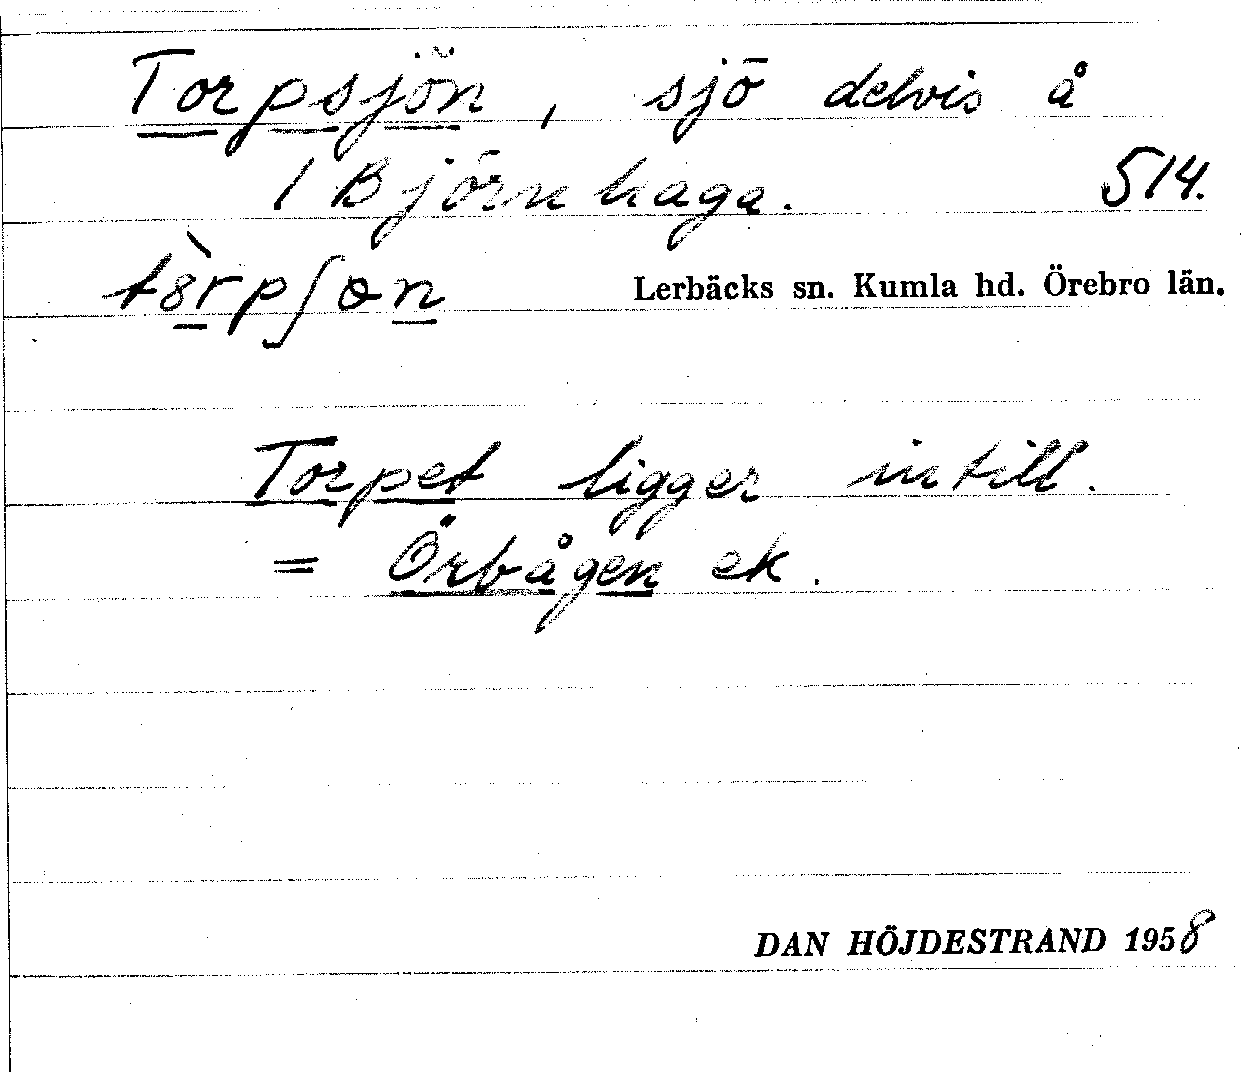 Torpsjön, sjö delvis å
1 Björnhaga. 514.
Lerbäcks sn. Kumla hd. Örebro län.
Torpet ligger intill.
= Örbågen ek.
DAN HÖJDESTRAND 1958